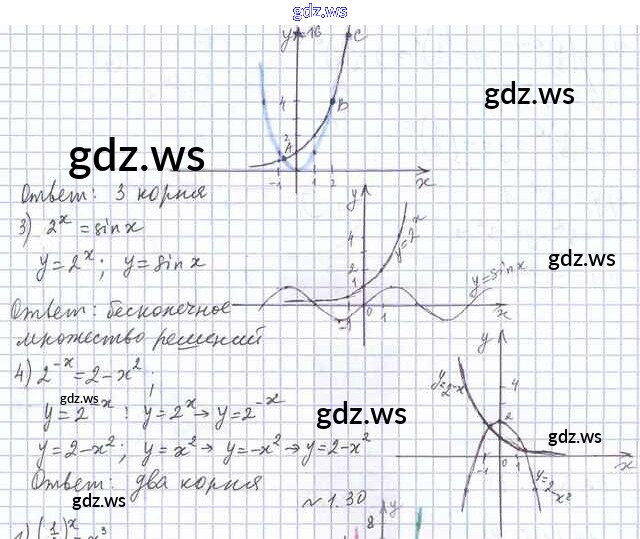 gdz.ws
y=16
C
gdz.ws
4
B
gdz.ws
2
A
-1 1 2 x
Ответ: 3 корня
y
3) 2^x = sin x
4
y=2^x
y = 2^x; y = sin x
gdz.ws
2
y=sin x
1
Ответ: бесконечное
-1 0 1 x
множество решений
y
4) 2^-x = 2 - x^2;
y=2^-x
4
gdz.ws
gdz.ws
y = 2^-x : y = 2^x → y = 2^-x
2
y = 2 - x^2; y = x^2 → y = -x^2 → y = 2 - x^2
gdz.ws
-1 0 1 x
Ответ: два корня
y=2-x^2
gdz.ws
~ 1.30
gdz.ws
8 y
1) (1/ )^x = x^3